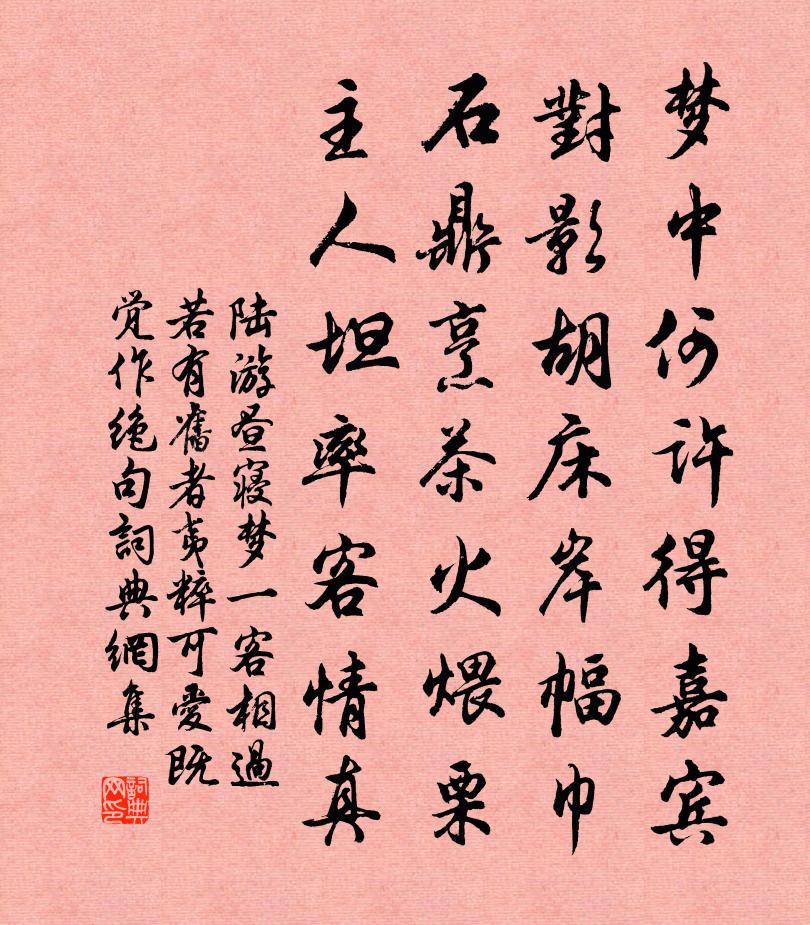 梦中何许得嘉宾
對影胡床岸幅巾
石鼎烹茶火煨栗
主人坦率客情真
陆游昼寝梦一客相過
若有舊者夷粹可愛既
觉作绝句詞典網集
詞典
网印